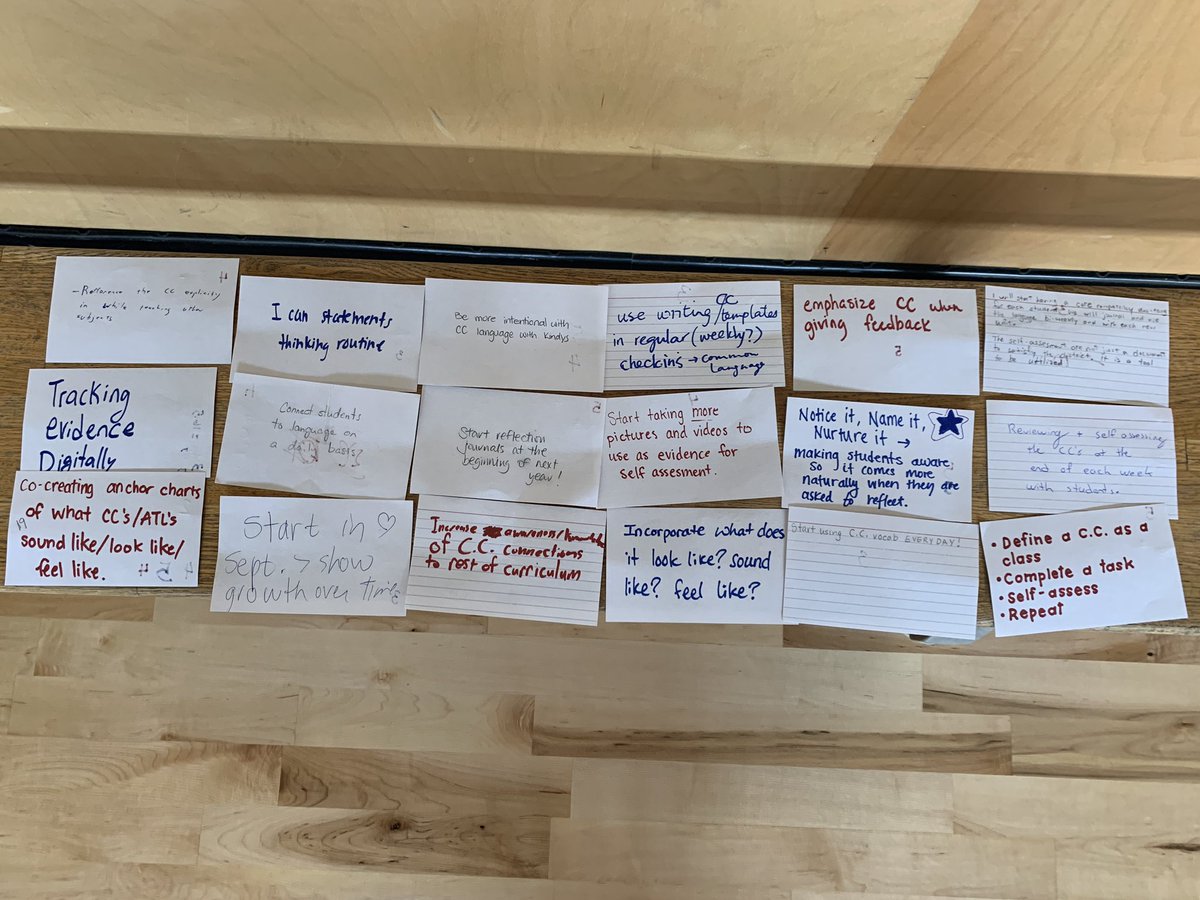 - Refference the CC explicity
in while teaching other
subjects
I can statements
thinking routine
Be more intentional with
CC language with Kindys!
CC
use writing/templates
in regular (weekly?)
checkins → common
language
emphasize CC when
giving feedback
I will start having a core competency
for each student. We will journal and use
the language bi-weekly and with each new
The self-assessment are not just a document
to satisfy the district, it is a tool
to be utilized!
Tracking
evidence
Digitally
Connect students
to language on
a daily basis
Start reflection
journals at the
beginning of next
year!
Start taking more
pictures and videos to
use as evidence for
self assesment.
Notice it, Name it,
Nurture it →
making students aware
so it comes more
naturally when they are
asked to reflect.
Reviewing + self assessing
the CC's at the
end of each week
with students.
Co-creating anchor charts
of what CC's/ATL's
sound like/look like/
feel like.
Start in ♡
Sept. > show
growth over time
Increase awareness/
of C.C. connections
to rest of curriculum
Incorporate what does
it look like? sound
like? feel like?
Start using C.C. vocab EVERYDAY!
• Define a C.C. as a
class
• Complete a task
• Self-assess
• Repeat